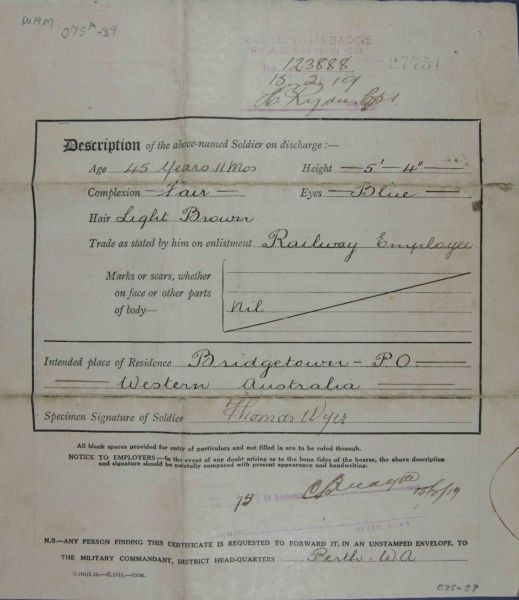 WAM
075A-89
ISSUED WITH BADGE
27751
No. 123888
15.2.19
Description of the above-named Soldier on discharge :—
Age 45 Years 11 Mos Height — 5' — 4" —
Complexion — Fair — Eyes — Blue —
Hair Light Brown
Trade as stated by him on enlistment Railway Employee
Marks or scars, whether
on face or other parts
of body— Nil
Intended place of Residence Bridgetown - P.O —
— Western Australia —
Specimen Signature of Soldier Thomas Wyer
All blank spaces provided for entry of particulars and not filled in are to be ruled through.
NOTICE TO EMPLOYERS:—In the event of any doubt arising as to the bona fides of the bearer, the above description
and signature should be carefully compared with present appearance and handwriting.
75
15/2/19
N.B.—ANY PERSON FINDING THIS CERTIFICATE IS REQUESTED TO FORWARD IT, IN AN UNSTAMPED ENVELOPE, TO
THE MILITARY COMMANDANT, DISTRICT HEAD-QUARTERS Perth - W.A
075-89